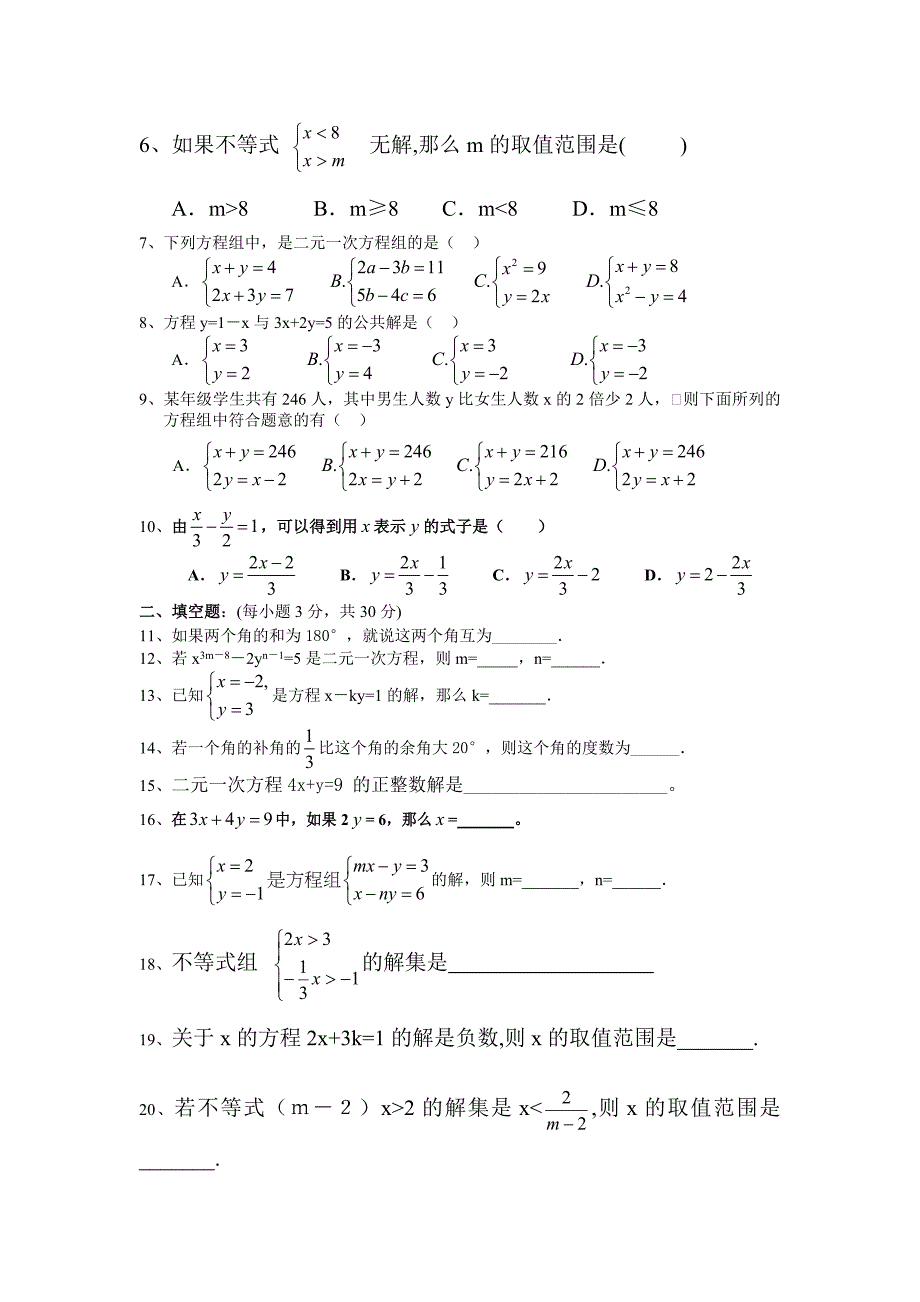 6、如果不等式 {x<8 x>m 无解,那么 m 的取值范围是( )
A．m>8 B．m≥8 C．m<8 D．m≤8
7、下列方程组中，是二元一次方程组的是（ ）
A．{x+y=4 2x+3y=7 B.{2a−3b=11 5b−4c=6 C.{x²=9 y=2x D.{x+y=8 x²−y=4
8、方程 y=1－x 与 3x+2y=5 的公共解是（ ）
A．{x=3 y=2 B.{x=−3 y=4 C.{x=3 y=−2 D.{x=−3 y=−2
9、某年级学生共有 246 人，其中男生人数 y 比女生人数 x 的 2 倍少 2 人，则下面所列的
方程组中符合题意的有（ ）
A．{x+y=246 2y=x−2 B.{x+y=246 2x=y+2 C.{x+y=216 y=2x+2 D.{x+y=246 2y=x+2
10、由 x/3−y/2=1，可以得到用 x 表示 y 的式子是（ ）
A．y=(2x−2)/3 B．y=2x/3−1/3 C．y=2x/3−2 D．y=2−2x/3
二、填空题：(每小题 3 分，共 30 分)
11、如果两个角的和为 180°，就说这两个角互为________．
12、若 x³ᵐ⁻⁸－2yⁿ⁻¹=5 是二元一次方程，则 m=_____，n=______．
13、已知 {x=−2, y=3 是方程 x－ky=1 的解，那么 k=_______．
14、若一个角的补角的 1/3 比这个角的余角大 20°，则这个角的度数为______．
15、二元一次方程 4x+y=9 的正整数解是______________________。
16、在 3x+4y=9 中，如果 2 y = 6，那么 x =_______。
17、已知 {x=2 y=−1 是方程组 {mx−y=3 x−ny=6 的解，则 m=_______，n=______．
18、不等式组 {2x>3 −1/3x>−1 的解集是___________________
19、关于 x 的方程 2x+3k=1 的解是负数,则 x 的取值范围是_______.
20、若不等式（ｍ－２）x>2 的解集是 x<2/(m−2),则 x 的取值范围是
_______.